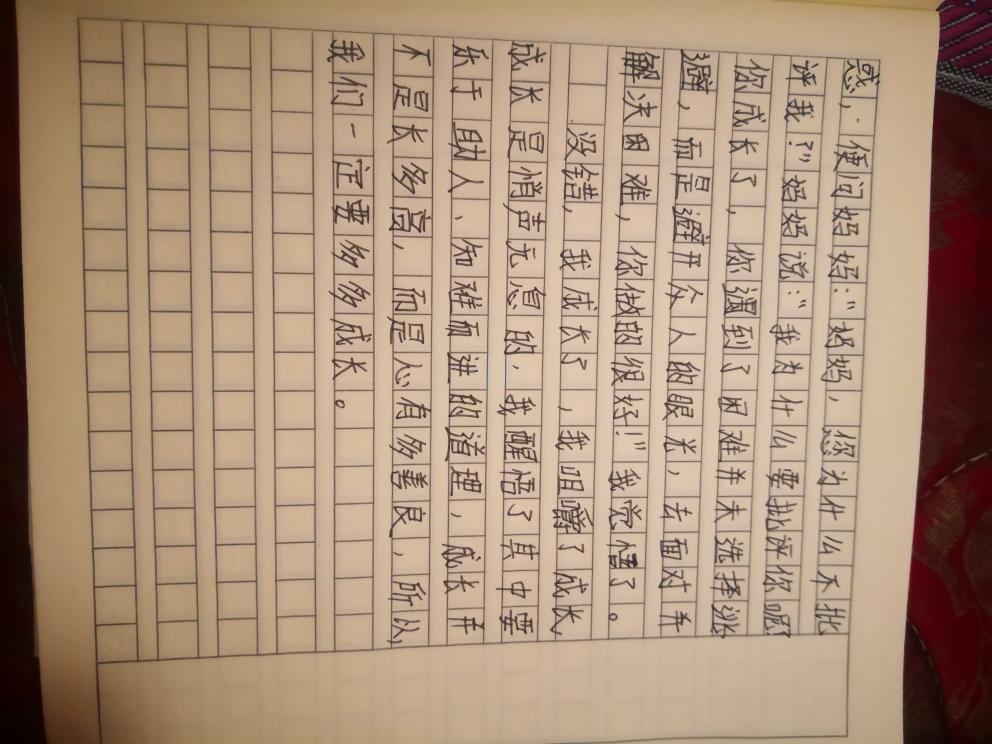 惑，便问妈妈：“妈妈，您为什么不批
评我？”妈妈说：“我为什么要批评你呢？
你成长了，你遇到了困难并未选择逃
避，而是避开众人的眼光，去面对并
解决困难，你做的很好！”我觉悟了。
没错，我成长了，我咀嚼了成长，
成长是悄声无息的，我醒悟了其中要
乐于助人、知难而进的道理，成长并
不是长多高，而是心有多善良，所以，
我们一定要多多成长。